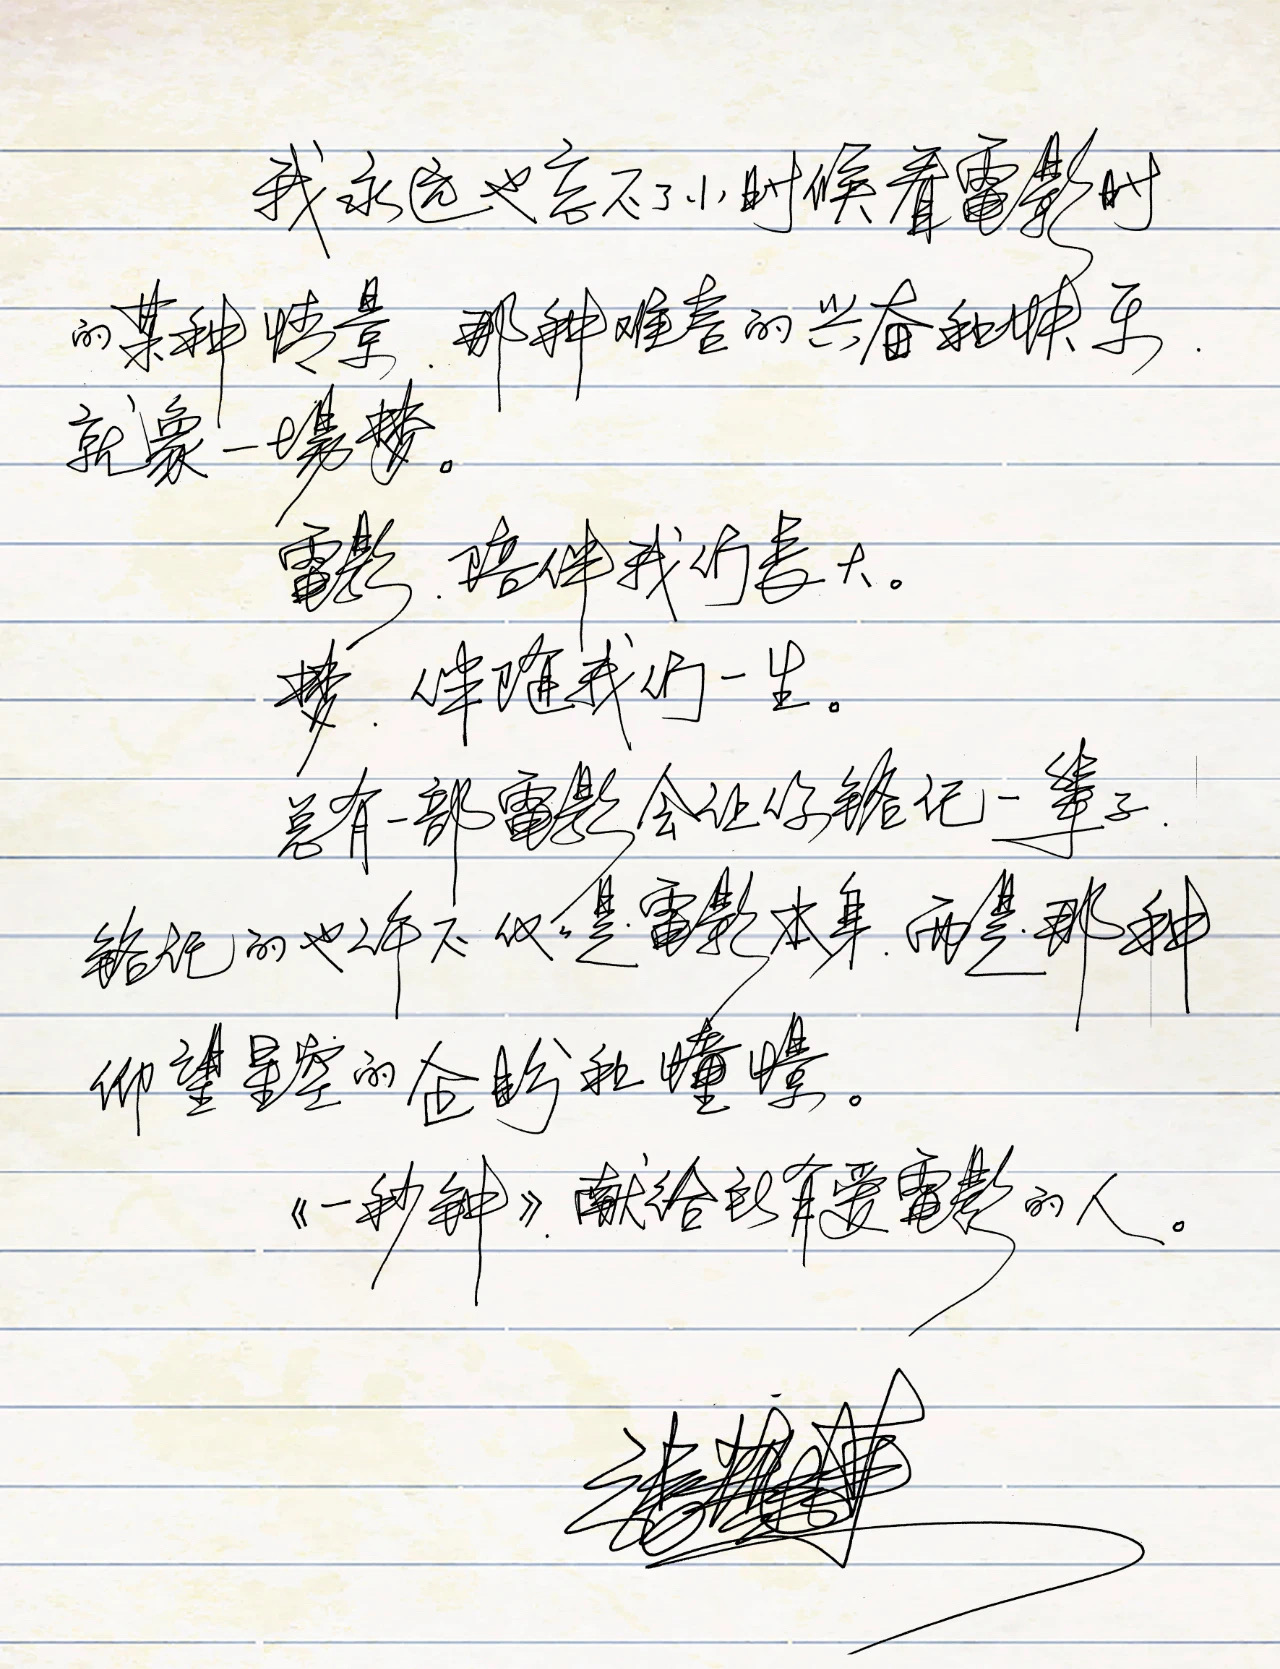 我永远也忘不了小时候看電影时
的某种情景.那种难言的兴奋和快乐.
就象一場梦。
電影.陪伴我们長大。
梦.伴随我们一生。
总有一部電影会让你铭记一辈子.
铭记的也许不仅仅是電影本身.而是那种
仰望星空的企盼和憧憬。
《一秒钟》.献给所有爱電影的人。